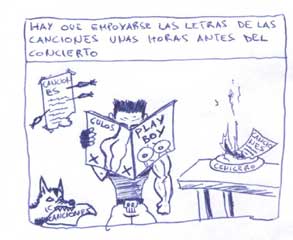 HAY QUE EMPOYARSE LAS LETRAS DE LAS
CANCIONES UNAS HORAS ANTES DEL
CONCIERTO
CANCIO
NES
CULOS
PLAY
BOY
CANCIO
NES
CENICERO
CANCIONES